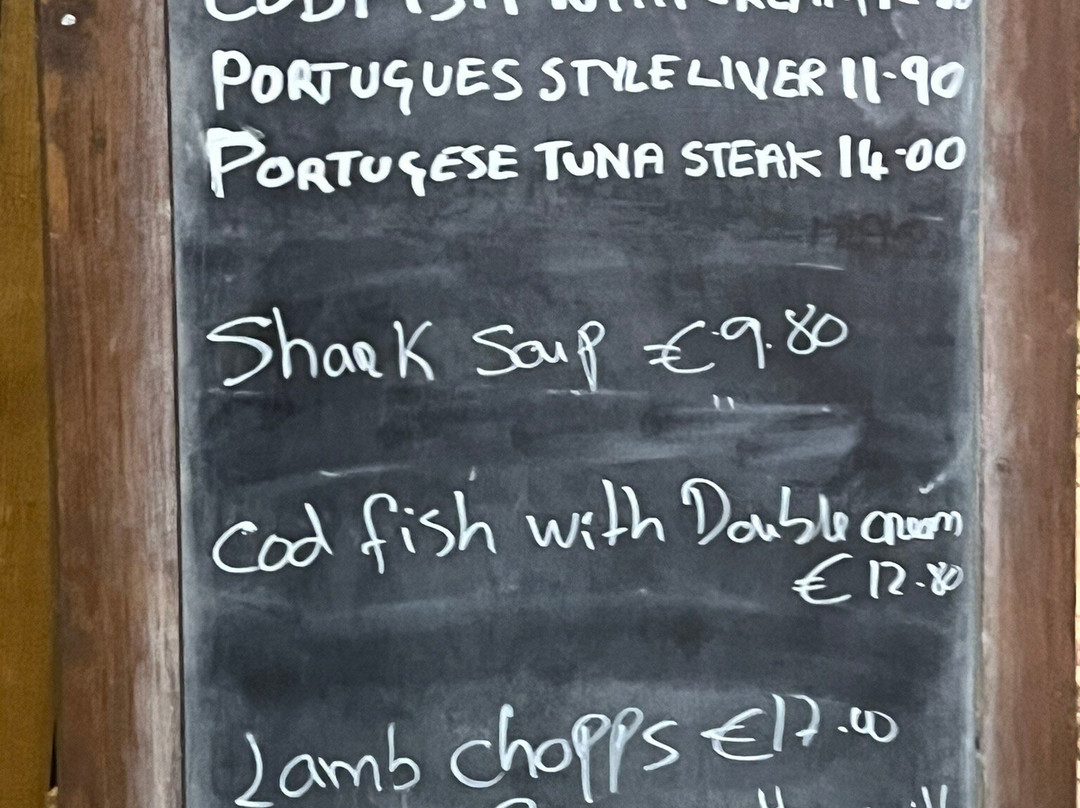 CODFISH WITH CREAM
PORTUGUES STYLE LIVER 11-90
PORTUGESE TUNA STEAK 14-00
Shark Soup €9.80
Cod fish with Double cream
€12.80
Lamb chopps €17.00